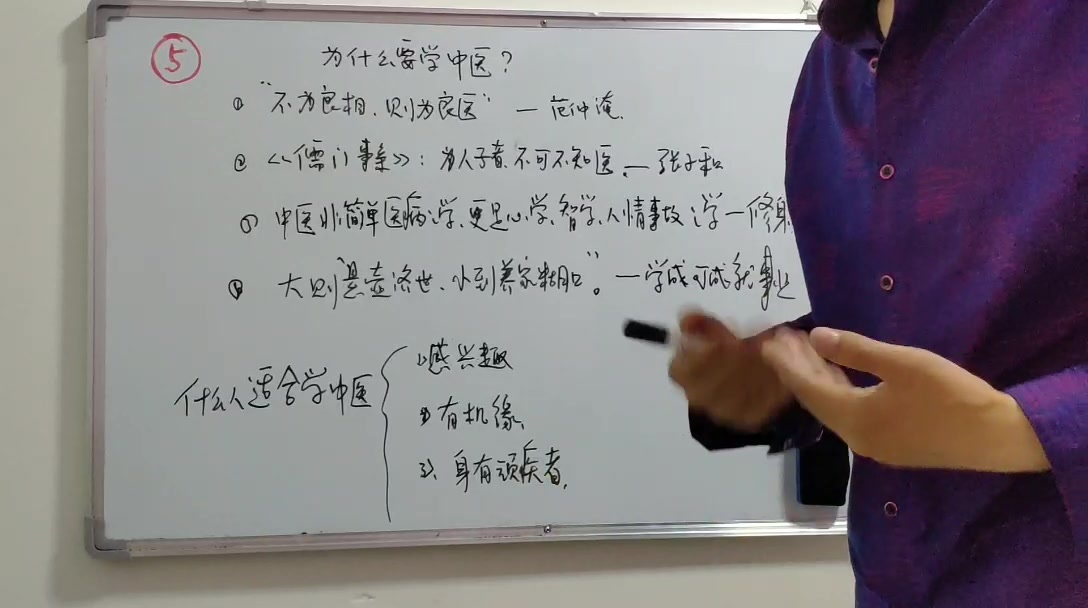 ⑤ 为什么要学中医？
① “不为良相、则为良医” — 范仲淹.
② 《儒门事亲》：为人子者、不可不知医. — 张子和
③ 中医非简单医病之学、更是心学、智学、人情事故之学 — 修身
④ 大则“悬壶济世、小到养家糊口”。— 学成可成就事业
什么人适合学中医
1、感兴趣
2、有机缘
3、身有顽疾者.